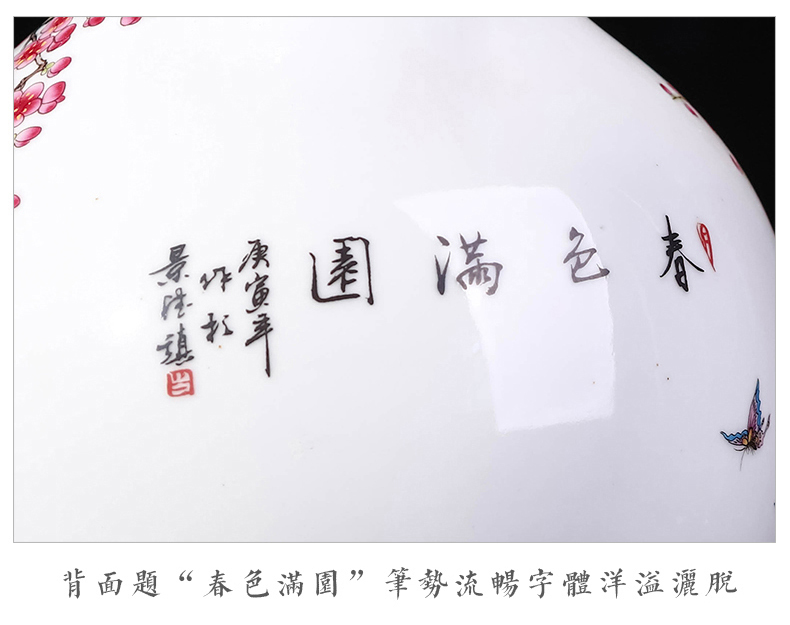 春色滿園
庚寅年
作於
景德鎮
背面題“春色滿園”筆勢流暢字體洋溢灑脫